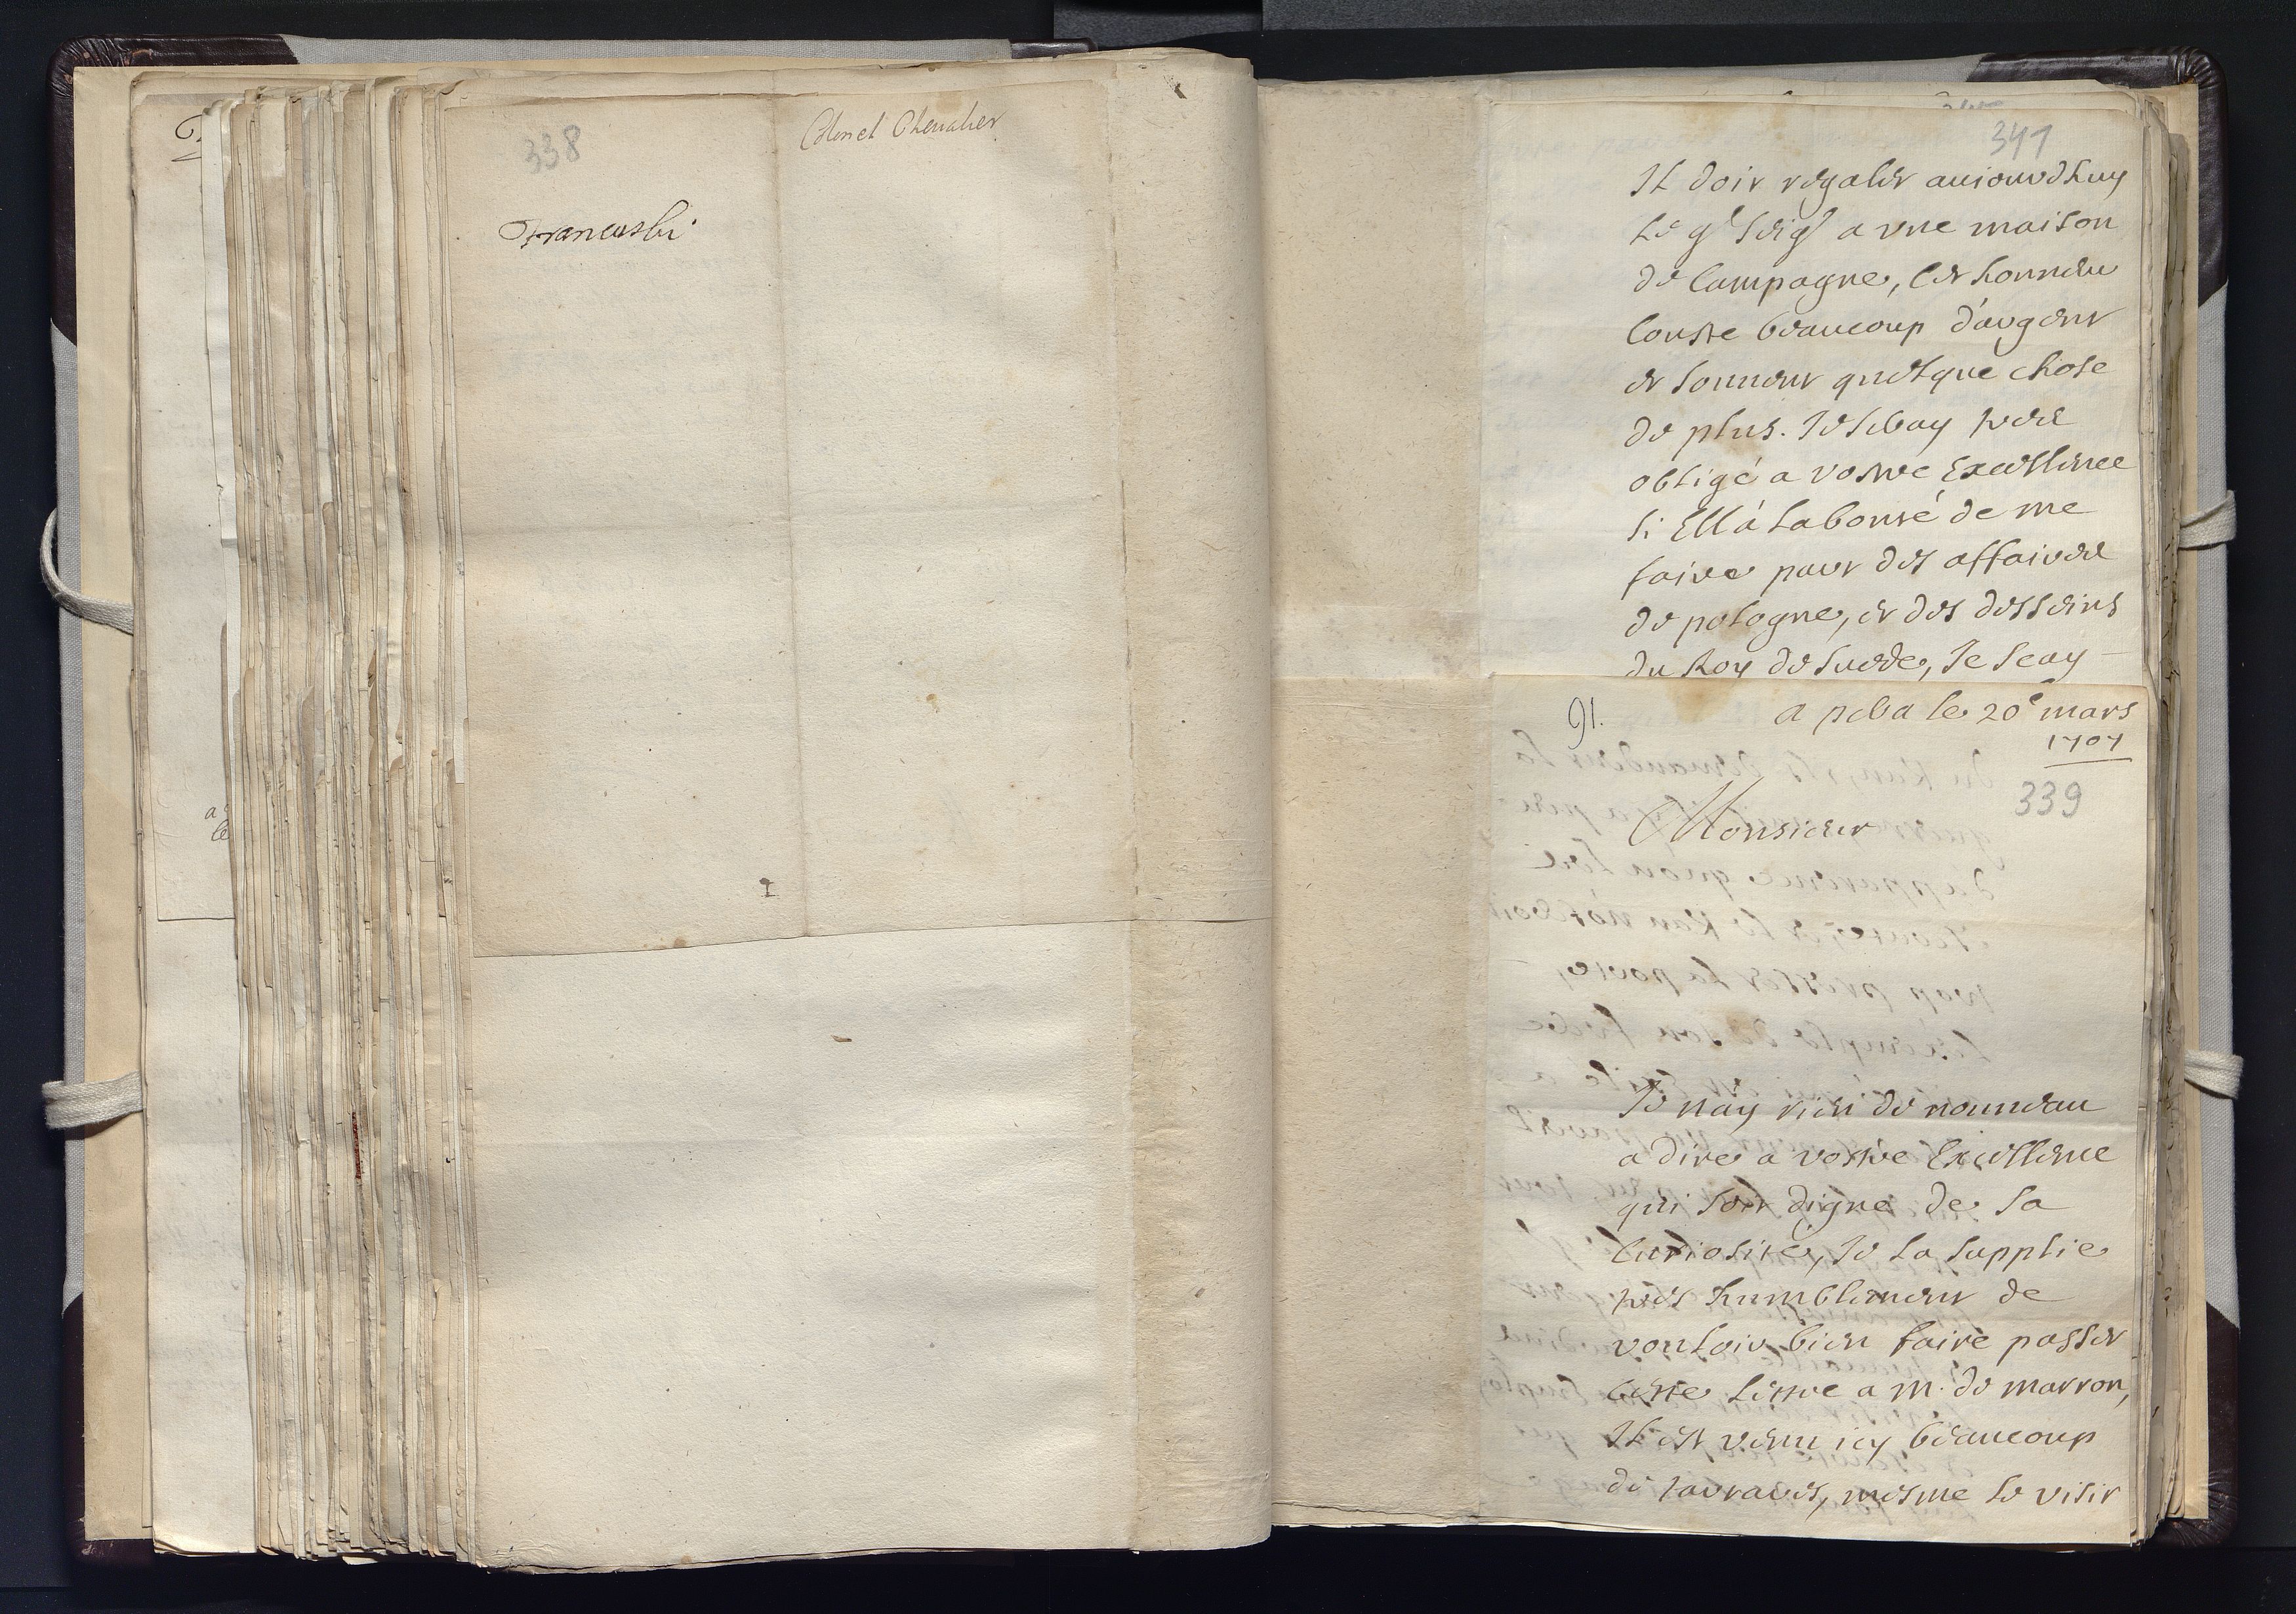 338
Colonel Chevalier
Francuski
341
Il doit regaler auiourdhuy
Le gd Seigr a une maison
de Campagne, Cet honneur
Couste beaucoup d'argent
et souuent quelque chose
de plus. Je seray tres
obligé a vostre Excellence
si Ell'a la bonté de me
faire part des affaires
de pologne, et des desseins
du Roy de suede, Je scay
91.
a pera le 20e mars
1707
339
Monsieur
Je n'ay rien de nouueau
a dire a vostre Excellence
qui soit digne de sa
Curiosité, Je La supplie
tres humblement de
vouloir bien faire passer
Cette Lettre a M. de marron,
Il est venu icy beaucoup
de tartares, mesme le visir